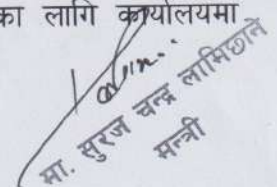 का लागि कार्यालयमा
मा. सुरज चन्द्र लामिछाने
मन्त्री